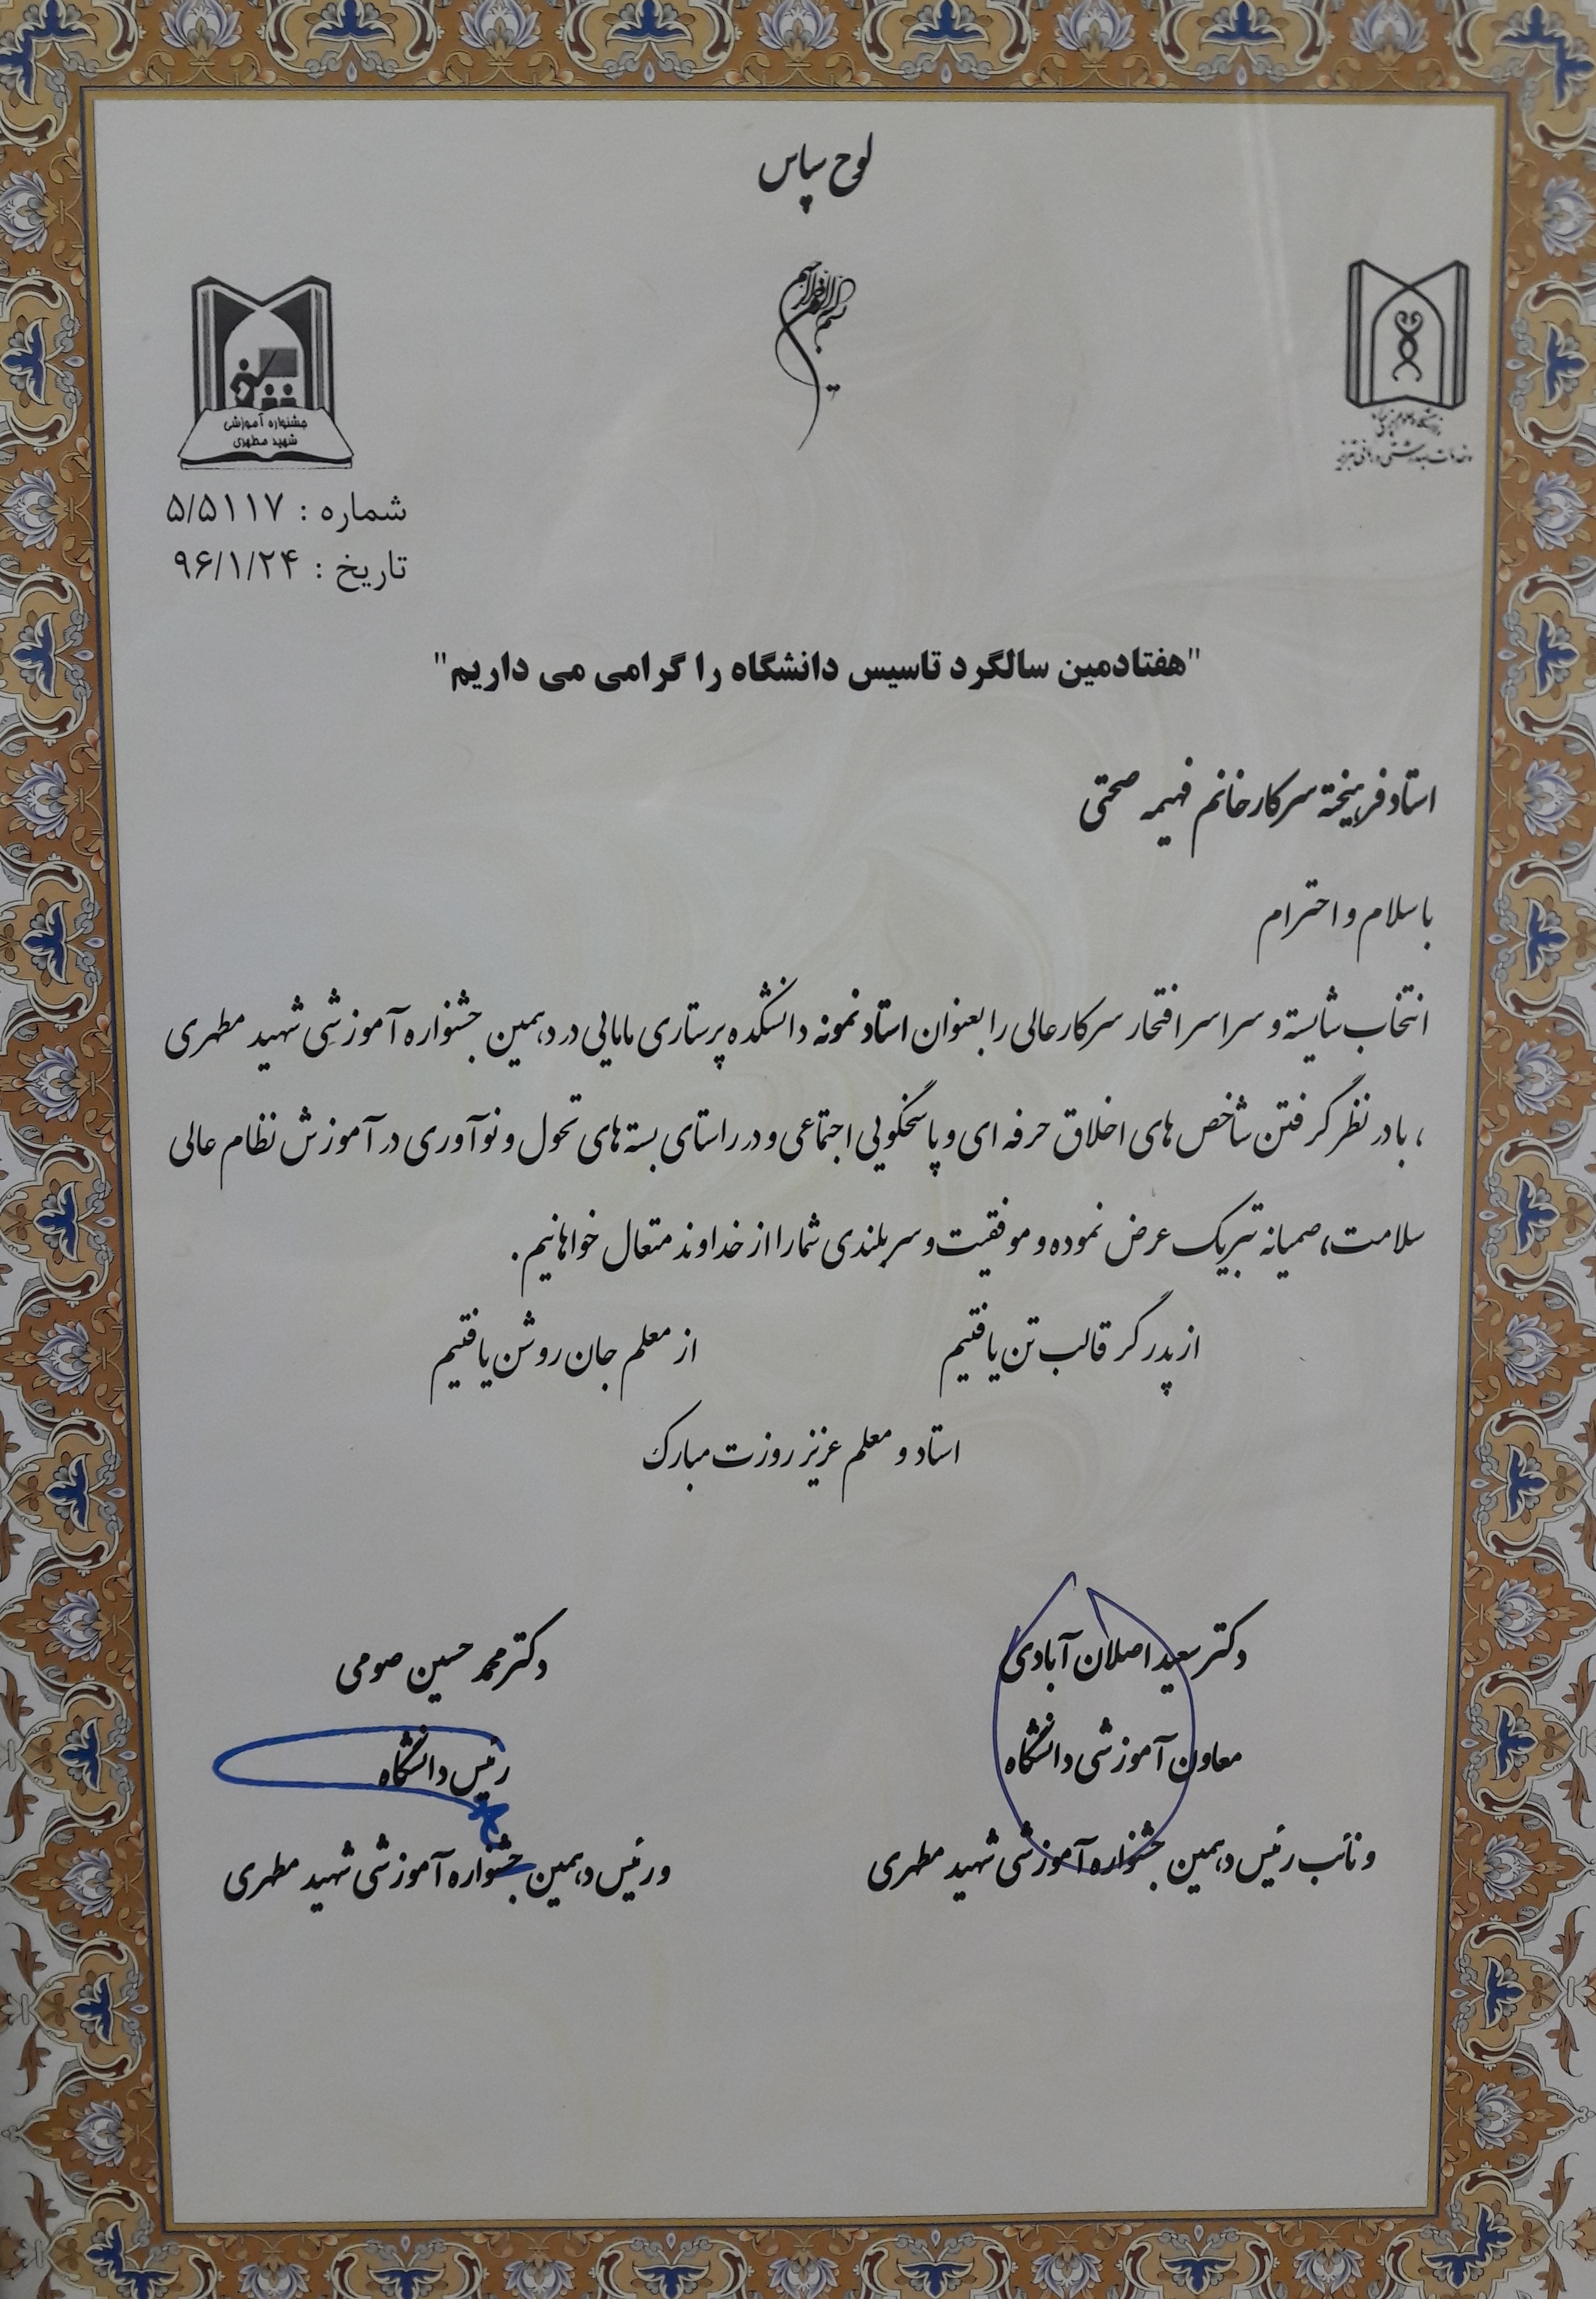 لوح سپاس
بسم الله الرحمن الرحیم
جشنواره آموزشی
شهید مطهری
دانشگاه علوم پزشکی
و خدمات بهداشتی درمانی تبریز
شماره : ۵/۵۱۱۷
تاریخ : ۹۶/۱/۲۴
"هفتادمین سالگرد تاسیس دانشگاه را گرامی می داریم"
استاد فرهیخته سرکار خانم فهیمه صحتی
با سلام و احترام
انتخاب شایسته و سراسر افتخار سرکار عالی را بعنوان استاد نمونه دانشکده پرستاری مامایی در دهمین جشنواره آموزشی شهید مطهری
، با در نظر گرفتن شاخص های اخلاق حرفه ای و پاسخگویی اجتماعی و در راستای بسته های تحول و نوآوری در آموزش نظام عالی
سلامت، صمیمانه تبریک عرض نموده و موفقیت و سربلندی شما را از خداوند متعال خواهانیم.
از پدر گر قالب تن یافتیم از معلم جان روشن یافتیم
استاد و معلم عزیز روزت مبارک
دکتر سعید اصلان آبادی
معاون آموزشی دانشگاه
و نائب رئیس دهمین جشنواره آموزشی شهید مطهری
دکتر محمد حسین صومی
رئیس دانشگاه
و رئیس دهمین جشنواره آموزشی شهید مطهری